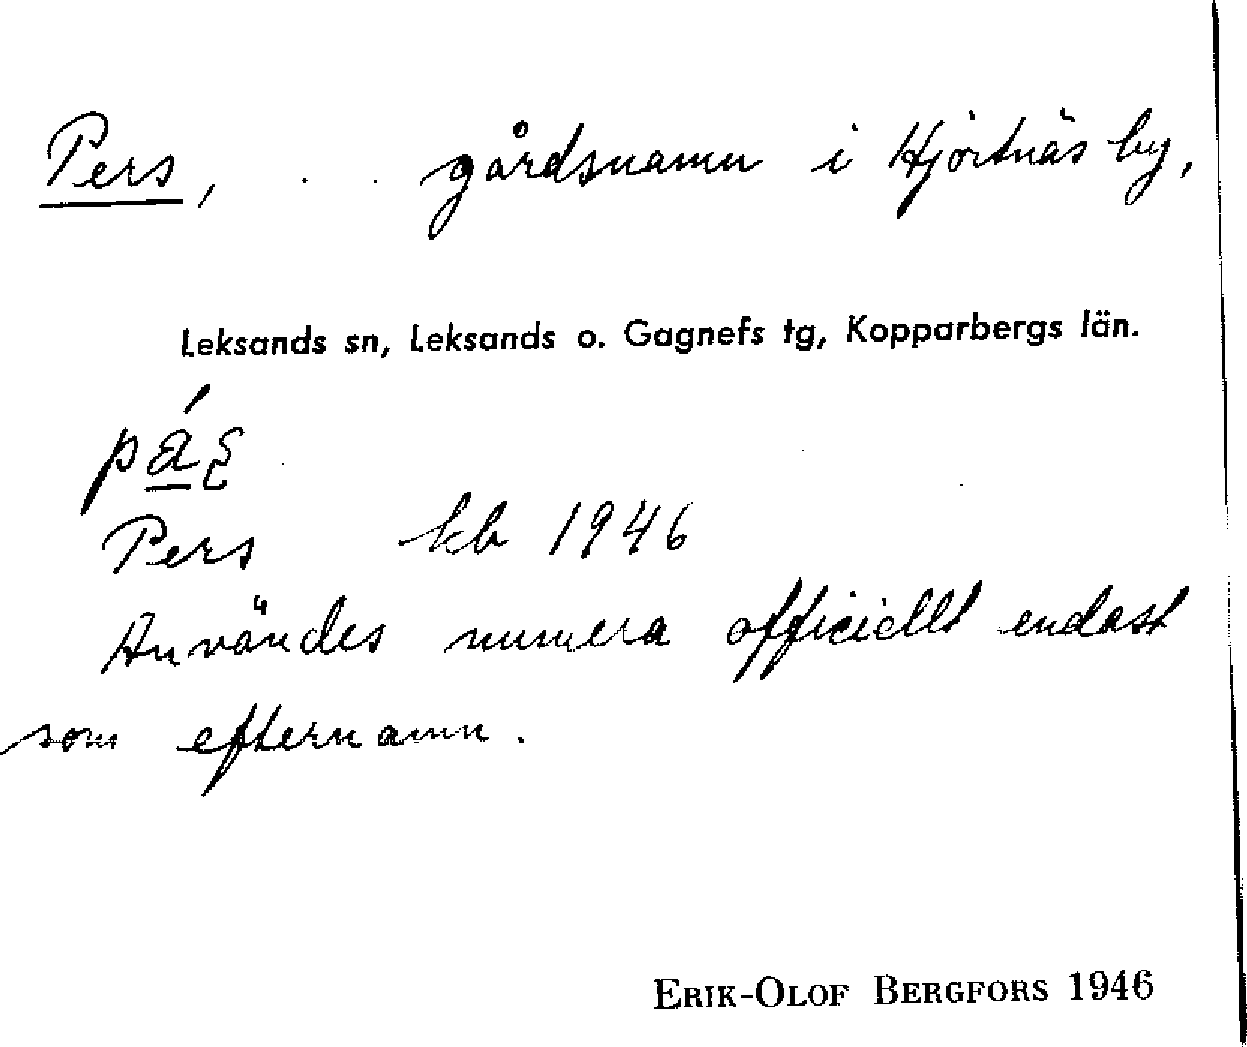 Pers, gårdsnamn i Hjörtnäs by,
Leksands sn, Leksands o. Gagnefs tg, Kopparbergs län.
Pers kb 1946
Användes numera officiellt endast
som efternamn.
ERIK-OLOF BERGFORS 1946